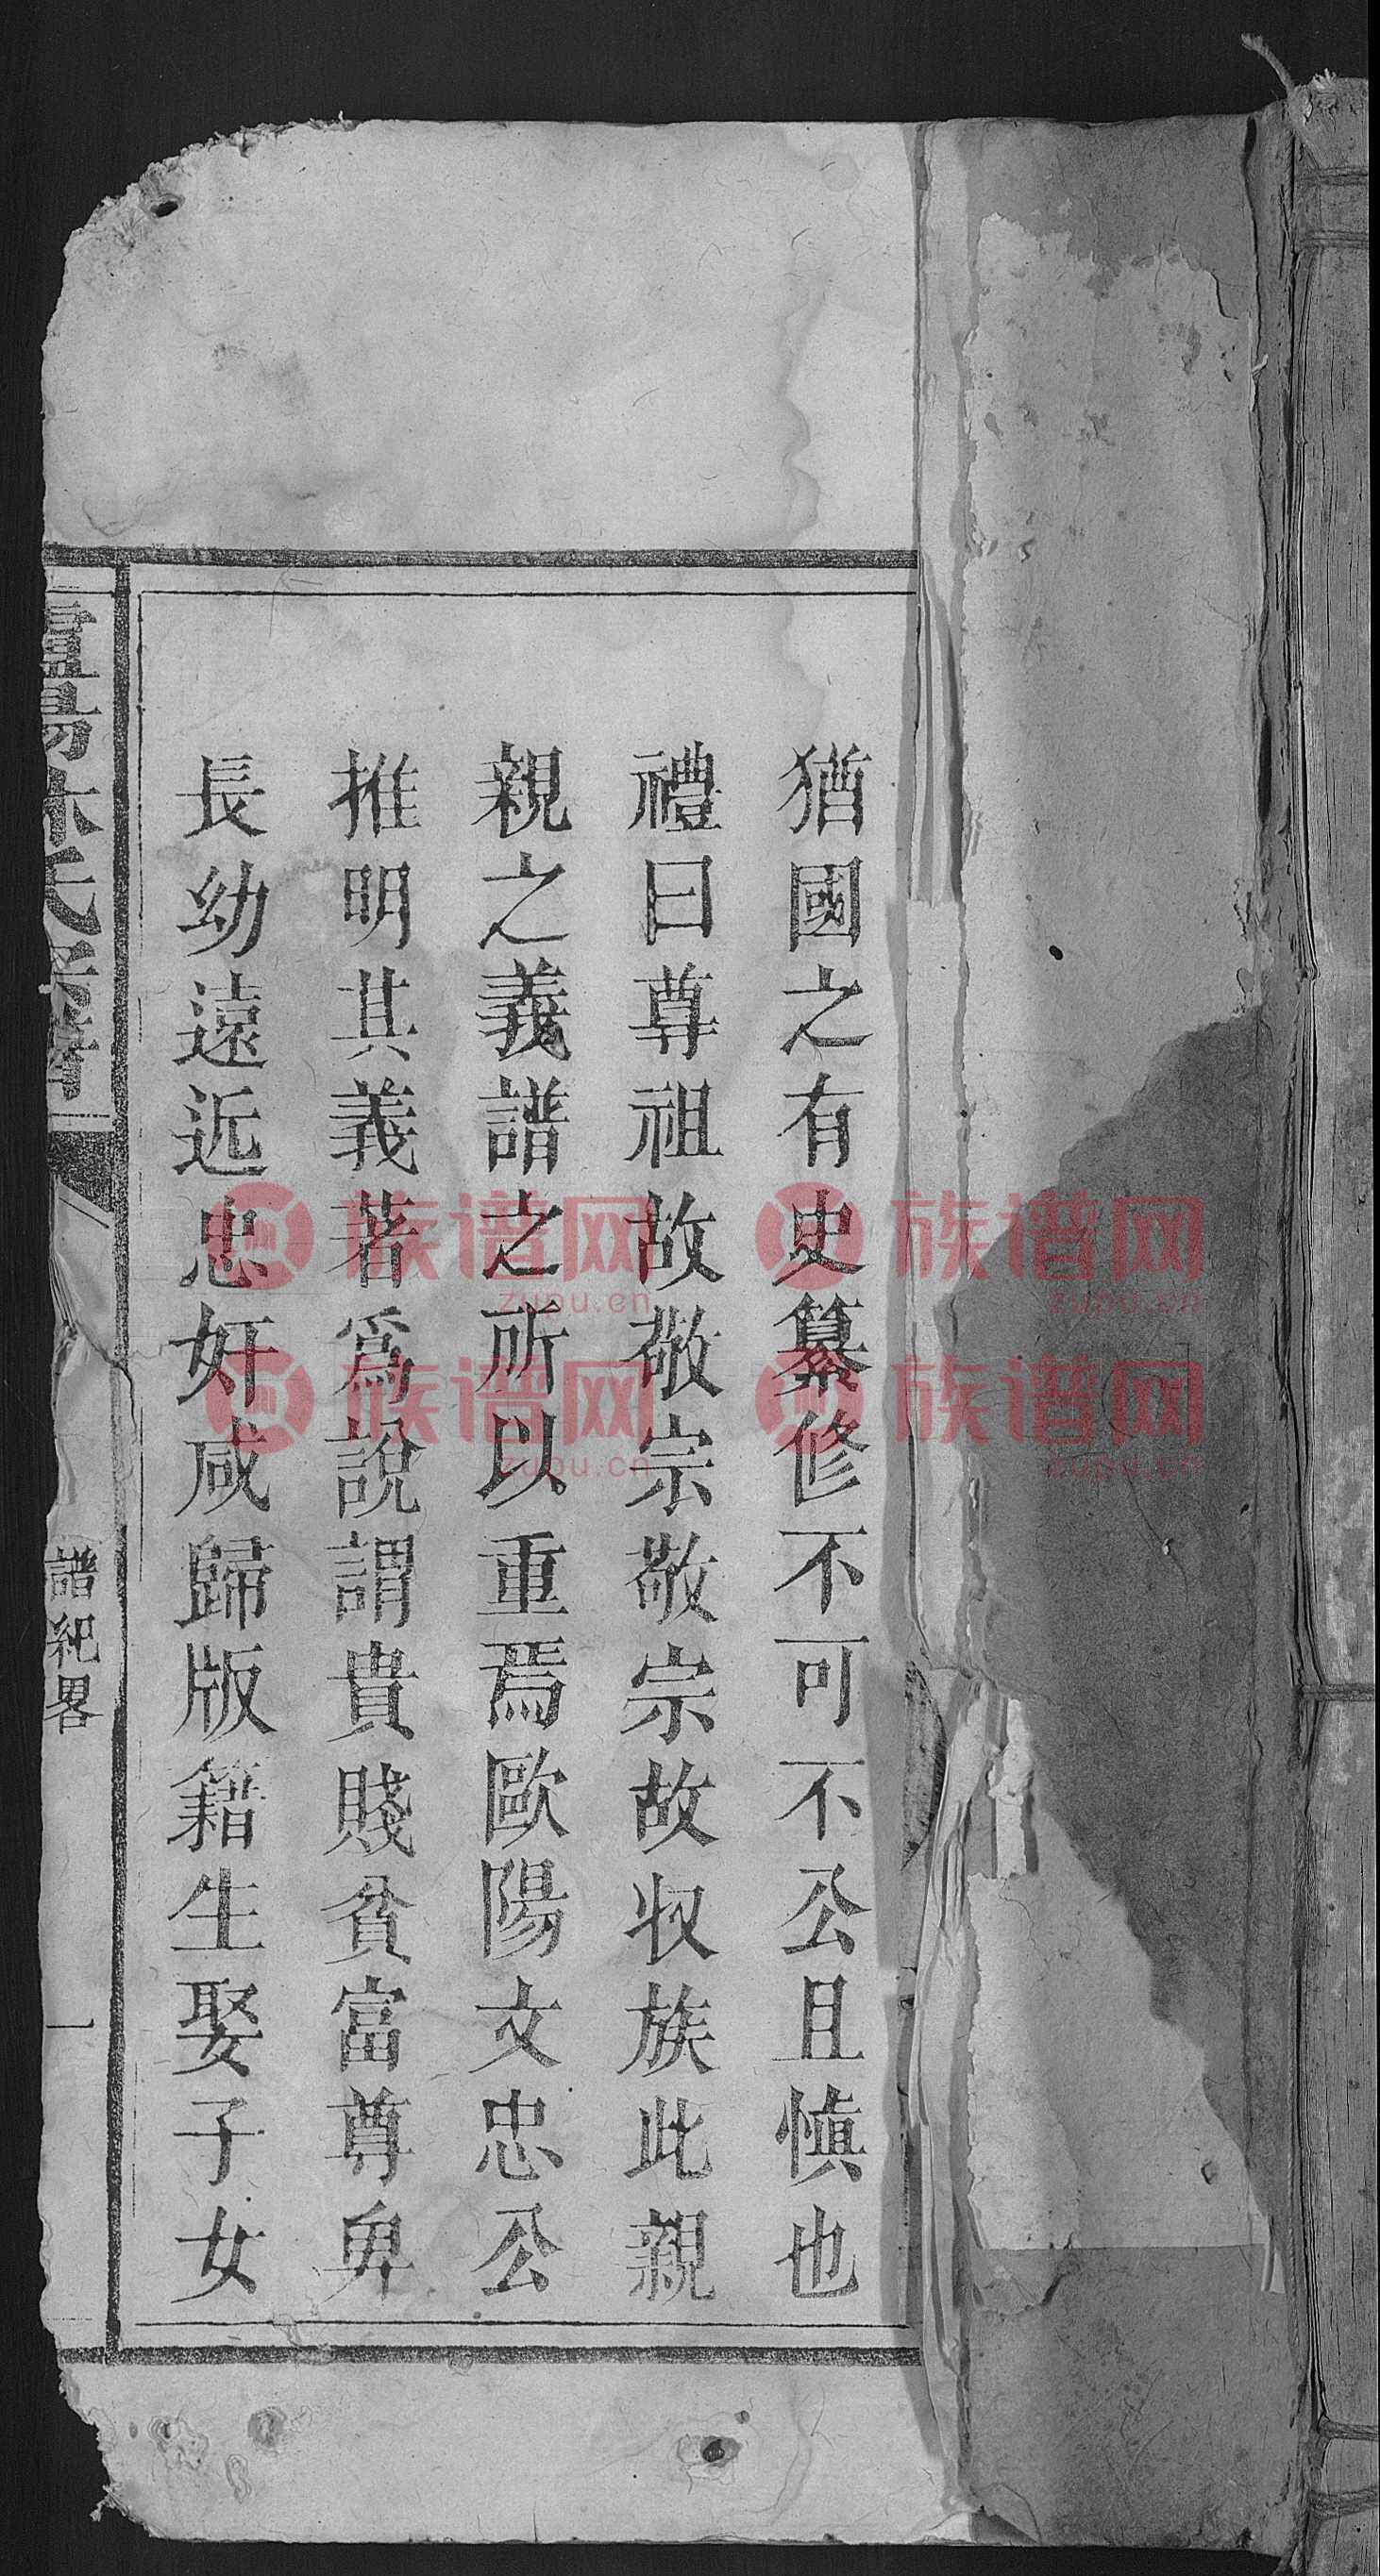 猶國之有史纂修不可不公且慎也
禮曰尊祖故敬宗敬宗故収族此親
親之義譜之所以重焉歐陽文忠公
推明其義著為說謂貴賤貧富尊卑
長幼遠近忠奸咸歸版籍生娶子女
氏宗譜
譜紀畧
一
族谱网
zupu.cn
族谱网
zupu.cn
族谱网
zupu.cn
族谱网
zupu.cn